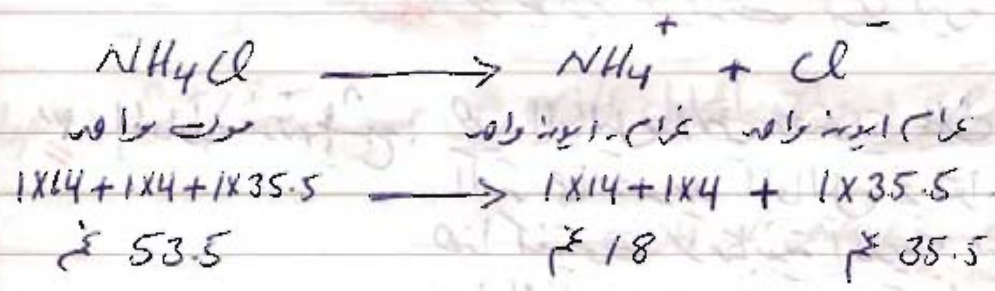 NH4Cl ⟶ NH4⁺ + Cl⁻
مول واحد غرام ـ ايون واحد غرام ايون واحد
1X14+1X4+1X35.5 ⟶ 1X14+1X4 + 1X35.5
53.5 غم 18 غم 35.5 غم